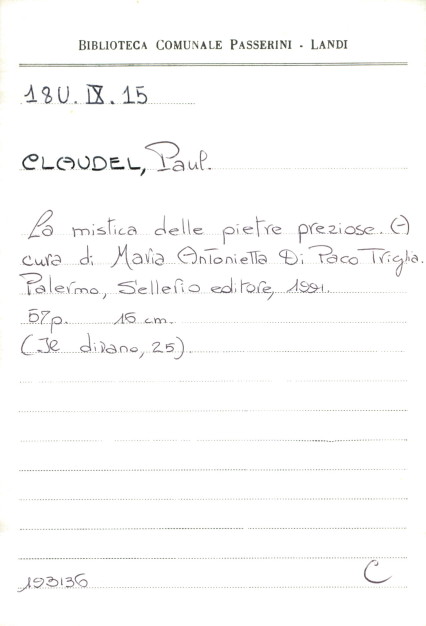 BIBLIOTECA COMUNALE PASSERINI - LANDI
18U. IX. 15
CLAUDEL, Paul.
La mistica delle pietre preziose. (-)
cura di Maria Antonietta Di Paco Triglia.
Palermo, Sellerio editore, 1991.
57p. 16 cm.
(Il divano, 25).
193136 C